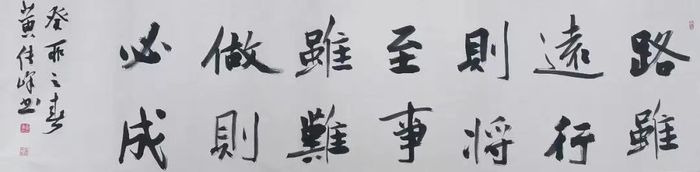 路雖
遠行
則將
至事
雖難
做則
必成
癸卯之春
黄佳峰书